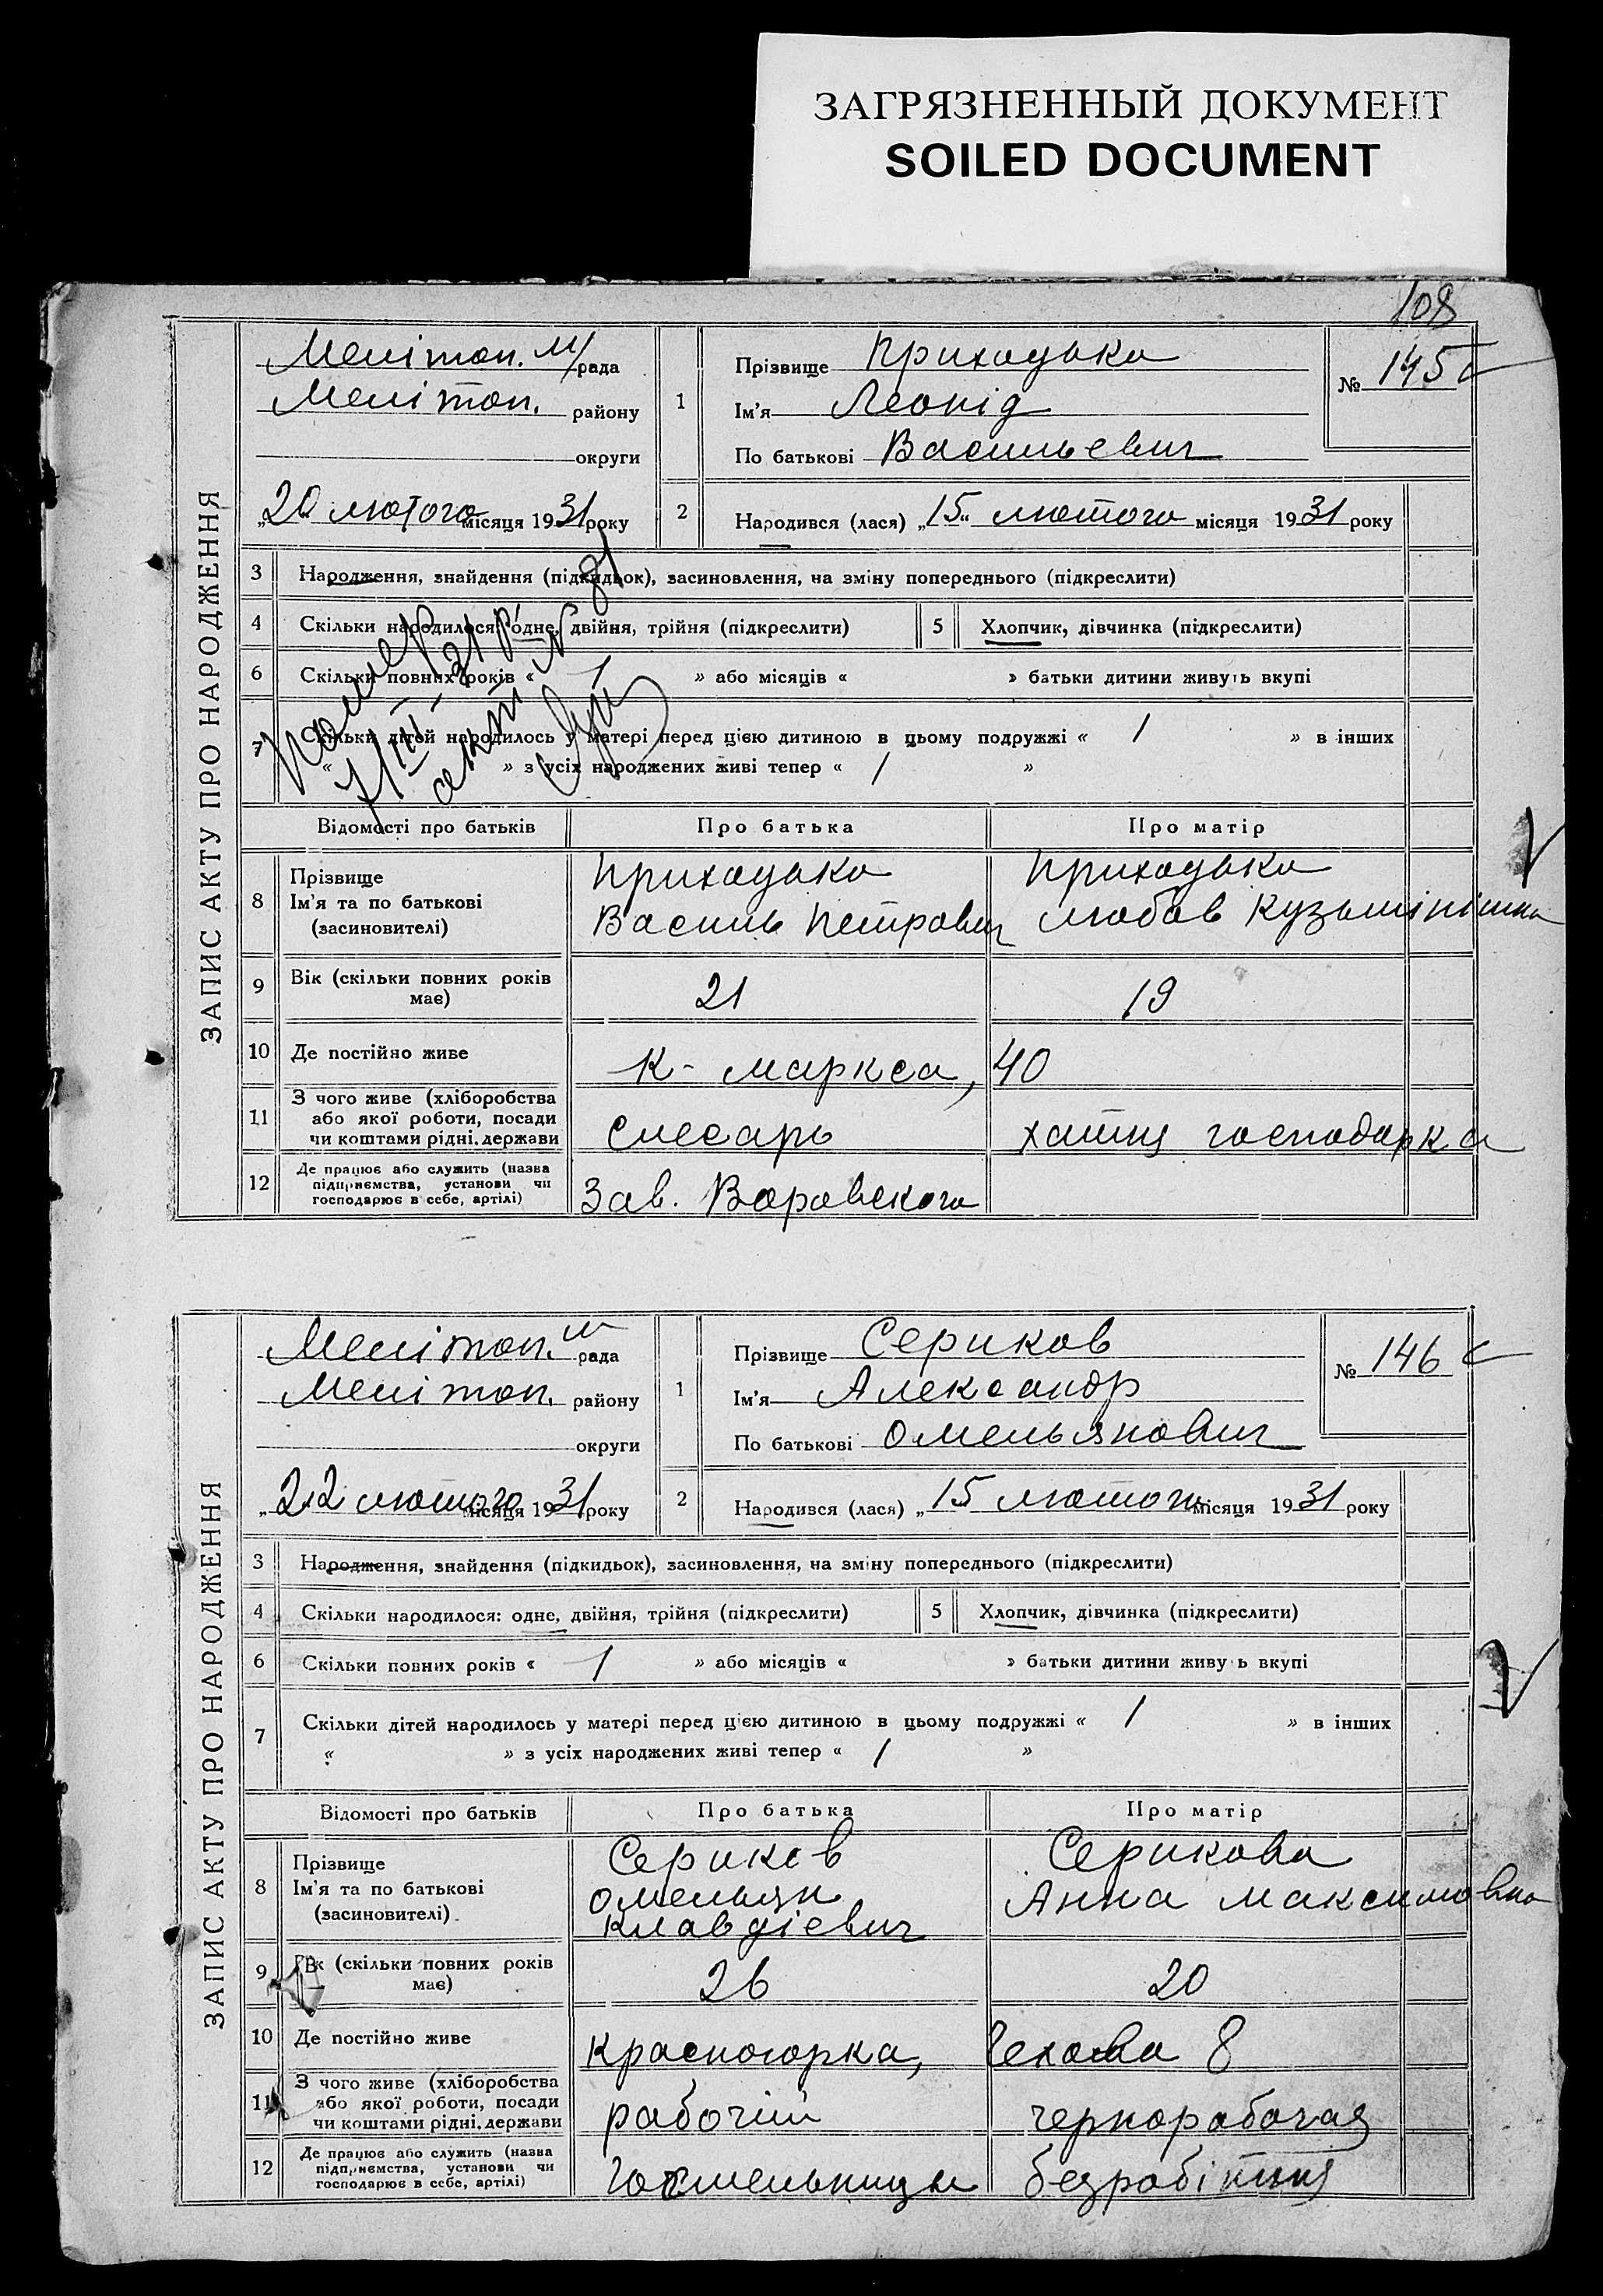 ЗАГРЯЗНЕННЫЙ ДОКУМЕНТ
SOILED DOCUMENT
108
ЗАПИС АКТУ ПРО НАРОДЖЕННЯ
Мелітоп. м/рада
Мелітоп. району
округи
„20 лютого місяця 1931 року
1
Прізвище Приходько
Ім'я Леонід
По батькові Васильевич
№ 145
2
Народився (лася) „15“ лютого місяця 1931 року
3 Народження, знайдення (підкидьок), засиновлення, на зміну попереднього (підкреслити)
4 Скільки народилося: одне, двійня, трійня (підкреслити)
5 Хлопчик, дівчинка (підкреслити)
6 Скільки повних років « 1 » або місяців « » батьки дитини живуть вкупі
7 Скільки дітей народилось у матері перед цією дитиною в цьому подружжі « 1 » в інших
« » з усіх народжених живі тепер « 1 »
Помер
Відомості про батьків
Про батька
Про матір
8 Прізвище
Ім'я та по батькові
(засиновителі)
Приходько
Василь Петрович
Приходько
Любов Кузьмінішна
9 Вік (скільки повних років
має)
21
19
10 Де постійно живе
К- Маркса, 40
11 З чого живе (хліборобства
або якої роботи, посади
чи коштами рідні, держави
слесарь
хатня господарка
12 Де працює або служить (назва
підприємства, установи чи
господарює в себе, артілі)
Зав. Воровского
ЗАПИС АКТУ ПРО НАРОДЖЕННЯ
Мелітоп. м рада
Мелітоп. району
округи
„22 лютого місяця 1931 року
1
Прізвище Сериков
Ім'я Александр
По батькові Омельянович
№ 146
2
Народився (лася) „15 лютого місяця 1931 року
3 Народження, знайдення (підкидьок), засиновлення, на зміну попереднього (підкреслити)
4 Скільки народилося: одне, двійня, трійня (підкреслити)
5 Хлопчик, дівчинка (підкреслити)
6 Скільки повних років « 1 » або місяців « » батьки дитини живуть вкупі
7 Скільки дітей народилось у матері перед цією дитиною в цьому подружжі « 1 » в інших
« » з усіх народжених живі тепер « 1 »
Відомості про батьків
Про батька
Про матір
8 Прізвище
Ім'я та по батькові
(засиновителі)
Сериков
Омельян
Клавдієвич
Серикова
Анна Максимовна
9 Вік (скільки повних років
має)
26
20
10 Де постійно живе
Красногорка, Чехова 8
11 З чого живе (хліборобства
або якої роботи, посади
чи коштами рідні, держави
рабочий
чернорабочая
12 Де працює або служить (назва
підприємства, установи чи
господарює в себе, артілі)
Госмельниця
безробітня